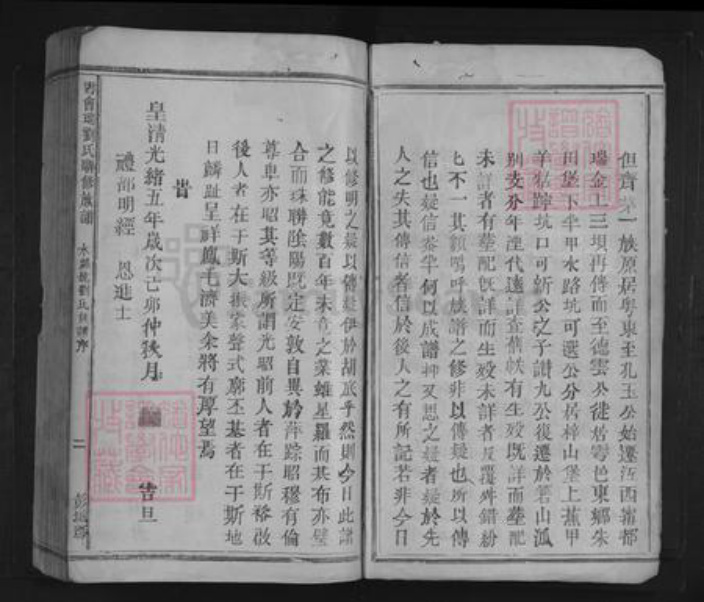 但齊苐一族原居粵東至孔玉公始遷江西甯都
瑞金上三垻再傳而至德雲公徙居雩邑東鄉朱
田堡下半甲水路坑可選公分居梓山堡上蕉甲
羊牯坑口可新公之子諧九公復遷於山
別支分年湮代遠訂查舊帙有生歿既詳而塟配
未詳者有塟配既詳而生歿未詳者反覆舛錯紛
不一其類嗚呼族譜之修非以傳疑也所以傳
信也疑信叅半何以成譜抑又思之疑者疑於先
人之失其傳信者信於後人之有所記若非今日
以修明之疑以傳疑伊於胡底乎然則今日此譜
之修能竟數百年未竟之業雖星羅而棊布亦璧
合而珠聯陰陽既定安敦自異於萍踪昭穆有倫
尊卑亦昭其等級所謂光昭前人者在于斯裕啟
後人者在于斯大振家聲式廓丕基者在于斯地
日麟趾呈祥鳳毛濟美余將有厚望焉
旹
皇清光緒五年歲次己卯仲秋月 告旦
禮部明經 恩進士
劉氏聯修族譜 水 劉氏族譜序 二 彭城郡